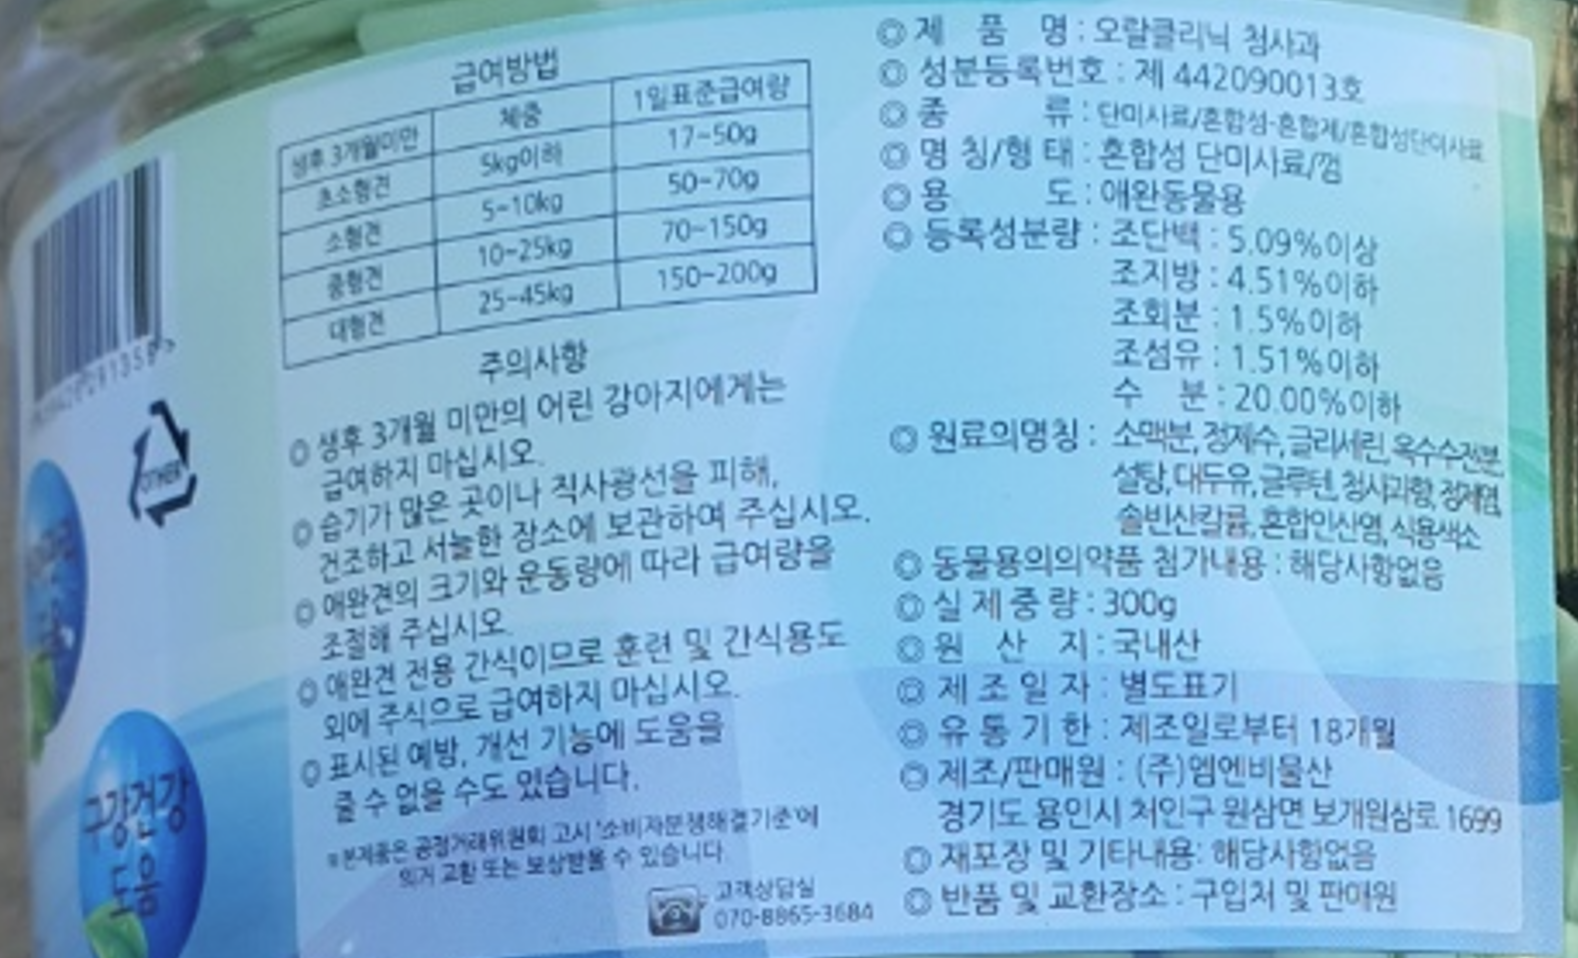 급여방법
생후 3개월미만 체중 1일표준급여량
초소형견 5kg이하 17~50g
소형견 5~10kg 50~70g
중형견 10~25kg 70~150g
대형견 25~45kg 150~200g
주의사항
◎ 생후 3개월 미만의 어린 강아지에게는
급여하지 마십시오.
◎ 습기가 많은 곳이나 직사광선을 피해,
건조하고 서늘한 장소에 보관하여 주십시오.
◎ 애완견의 크기와 운동량에 따라 급여량을
조절해 주십시오.
◎ 애완견 전용 간식이므로 훈련 및 간식용도
외에 주식으로 급여하지 마십시오.
◎ 표시된 예방, 개선 기능에 도움을
줄 수 없을 수도 있습니다.
※본제품은 공정거래위원회 고시 '소비자분쟁해결기준'에
의거 교환 또는 보상받을 수 있습니다.
고객상담실
070-8865-3684
◎ 제 품 명 : 오랄클리닉 청사과
◎ 성분등록번호 : 제 442090013호
◎ 종 류 : 단미사료/혼합성·혼합제/혼합성단미사료
◎ 명 칭/형 태 : 혼합성 단미사료/껌
◎ 용 도 : 애완동물용
◎ 등록성분량 : 조단백 : 5.09%이상
조지방 : 4.51%이하
조회분 : 1.5%이하
조섬유 : 1.51%이하
수 분 : 20.00%이하
◎ 원료의명칭 : 소맥분, 정제수, 글리세린, 옥수수전분,
설탕, 대두유, 글루텐, 청사과향, 정제염,
솔빈산칼륨, 혼합인산염, 식용색소
◎ 동물용의의약품 첨가내용 : 해당사항없음
◎ 실 제 중 량 : 300g
◎ 원 산 지 : 국내산
◎ 제 조 일 자 : 별도표기
◎ 유 통 기 한 : 제조일로부터 18개월
◎ 제조/판매원 : (주)엠엔비물산
경기도 용인시 처인구 원삼면 보개원삼로 1699
◎ 재포장 및 기타내용: 해당사항없음
◎ 반품 및 교환장소 : 구입처 및 판매원
OTHER
구강건강
도움